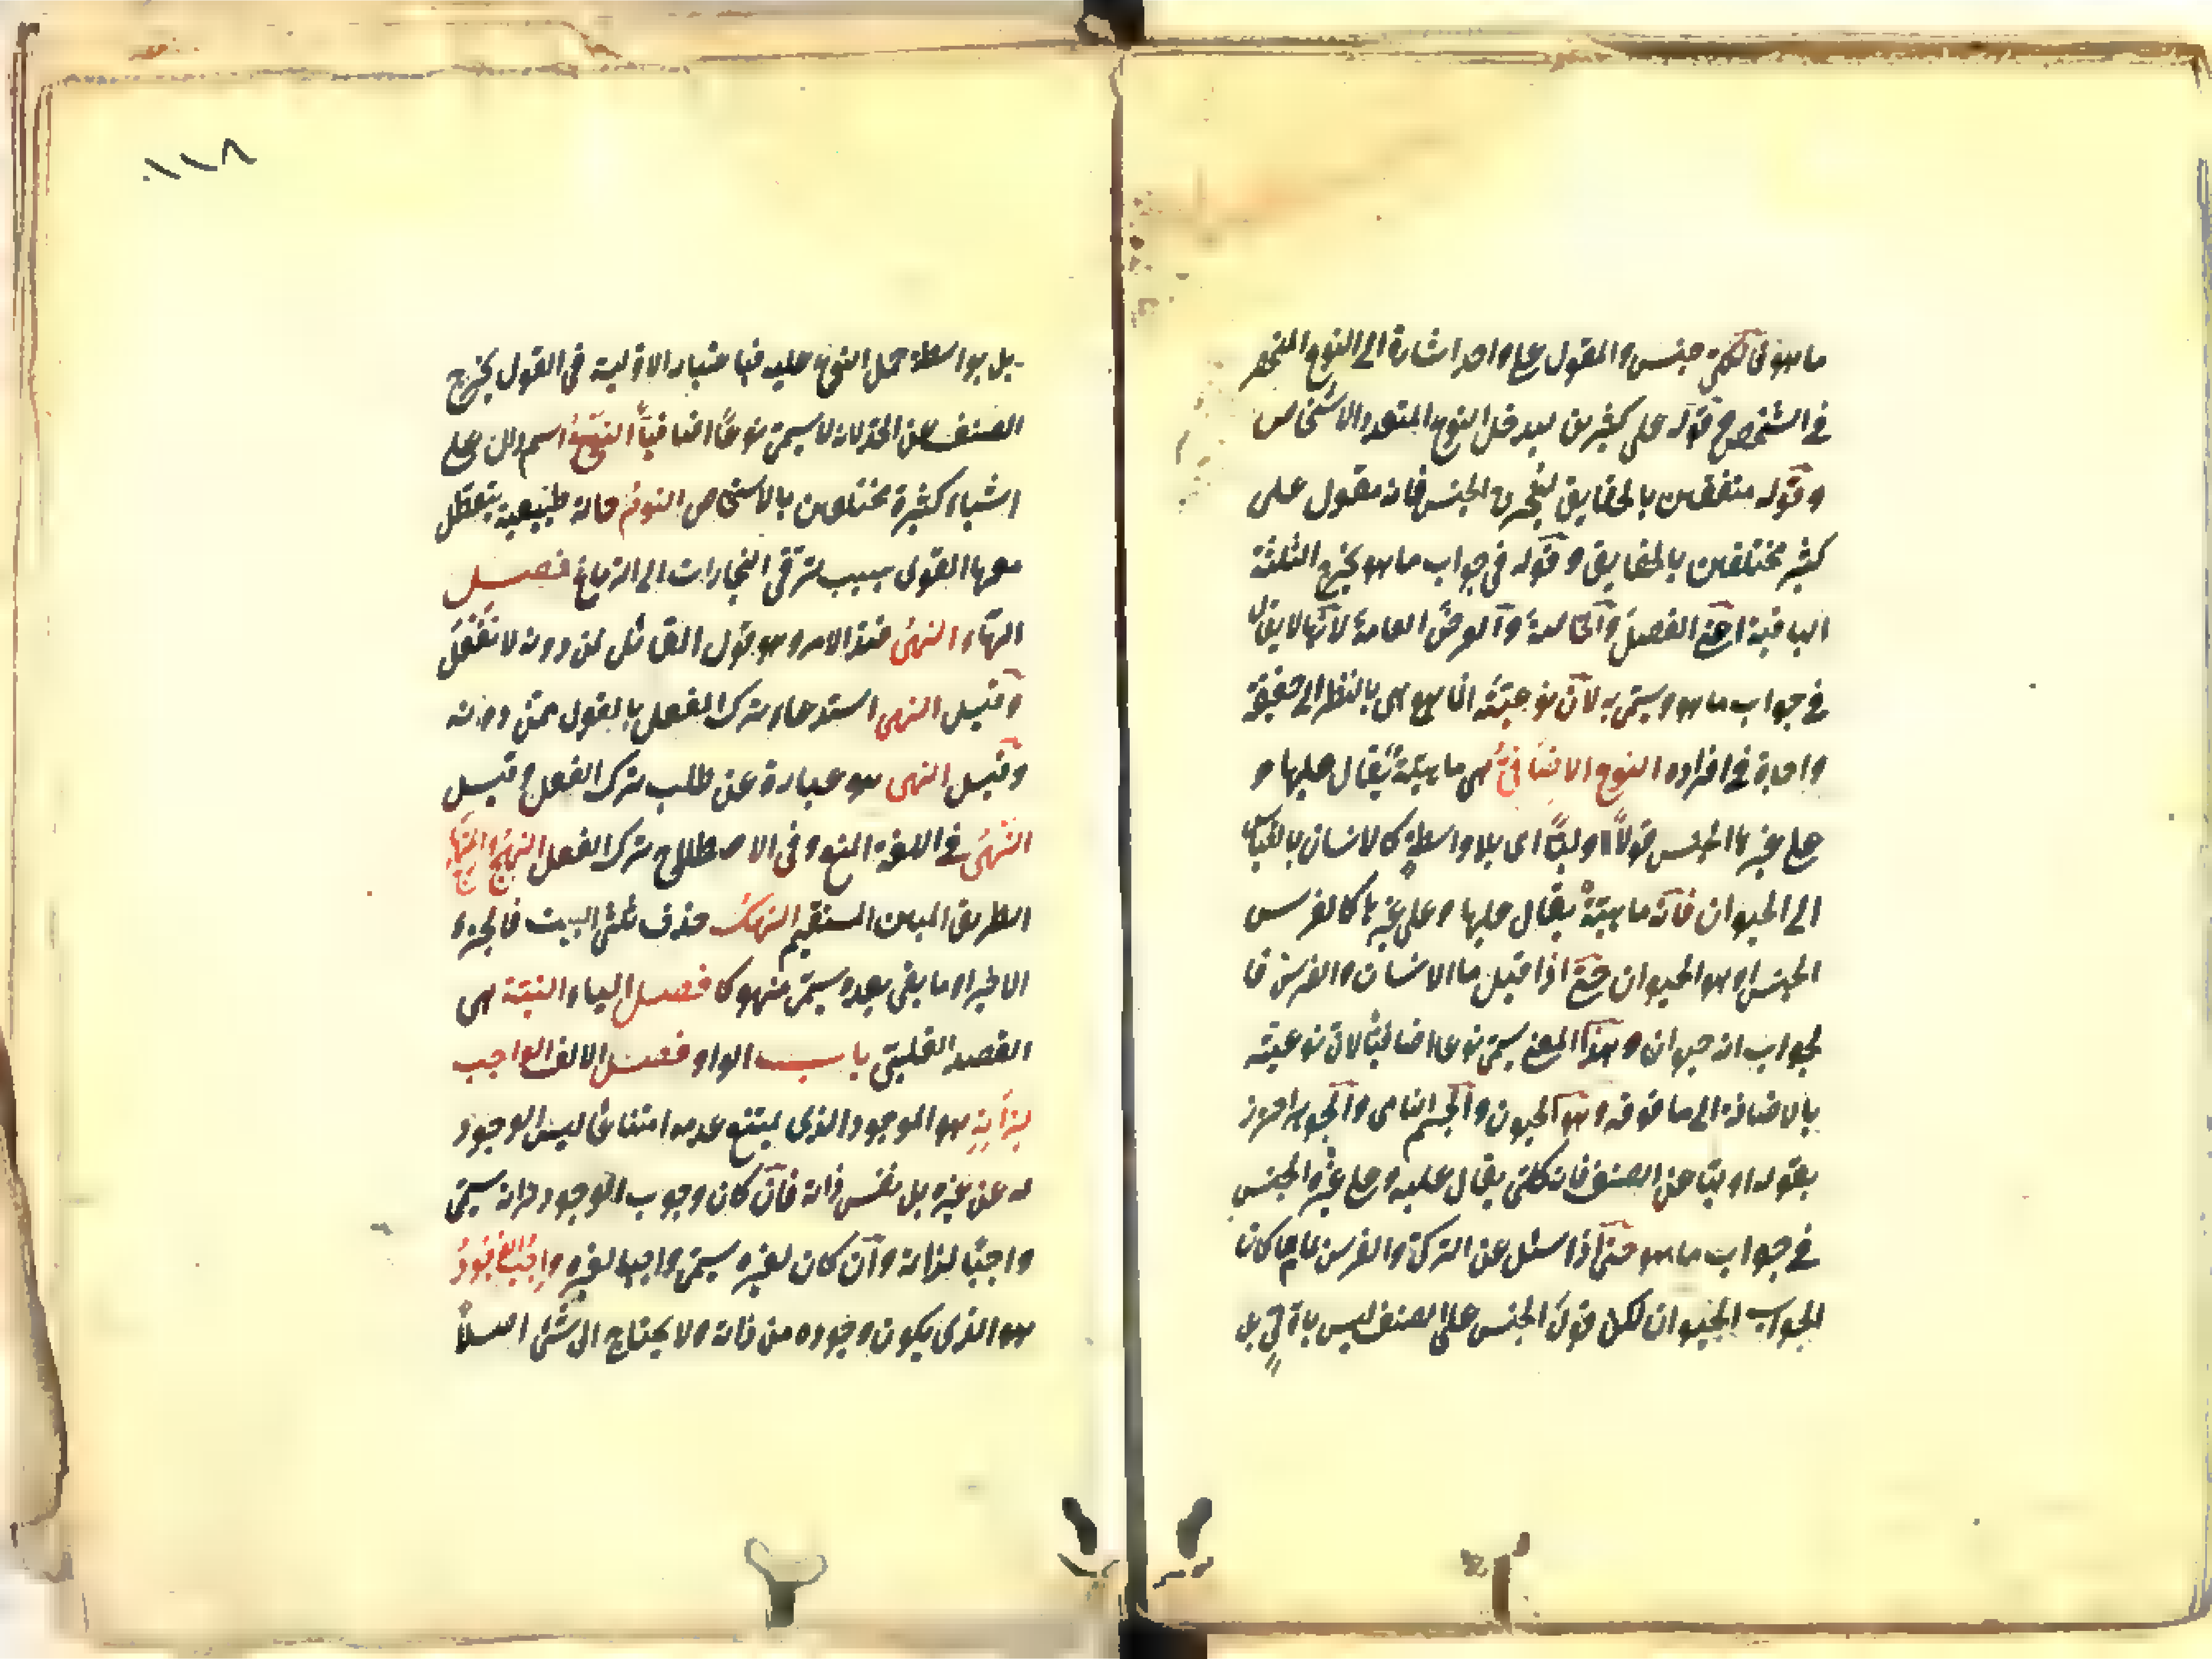 ما هو فالكلي جنس والمقول على واحد اشارة الى النوع المنحصر
في الشخص وقوله على كثيرين ليدخل النوع المتعدد الاشخاص
وقوله متفقين بالحقايق ليخرج الجنس فانه مقول على
كثير مختلفين بالحقايق وقوله في جواب ما هو يخرج الثلثة
الباقية اعني الفصل والخاصة والعرض العامة لانها لا يقال
في جواب ما هو وسمى به لان نوعيته انما هو هي بالنظر الى حقيقة
واحدة في افراده النوع الاضافي هي ماهية يقال عليها و
على غيرها الجنس قولا اوليا اى بلا واسطة كالانسان بالقياس
الى الحيوان فانه ماهية يقال عليها وعلى غيرها كالفرس
الجنس وهو الحيوان حتى اذا قيل ما الانسان والفرس فا
لجواب انه حيوان وهذا المعنى يسمى نوعا اضافيا لان نوعيته
بالاضافة الى ما فوقه وهو الحيوان والجسم النامى والجوهر احترز
بقوله اوليا عن الصنف فانه كلى يقال عليه وعلى غيره الجنس
في جواب ما هو حتى اذا سئل عن التركى والفرس بما هما كان
الجواب الحيوان لكن قول الجنس على الصنف ليس باولى بل
١١٨
بل بواسطة حمل النوع عليه فباعتبار الاولية في القول يخرج
الصنف عن الحد لانه لا يسمى نوعا اضافيا النوع اسم دال على
اشياء كثيرة مختلفين بالاشخاص النوم حالة طبيعية يتعطل
معها القوى بسبب ترقى البخارات الى الدماغ فصل
الهاء النهى ضد الامر وهو قول القائل لمن دونه لا تفعل
وقيل النهى استدعاء ترك الفعل بالقول ممن دونه
وقيل النهى هو عبارة عن طلب ترك الفعل وقيل
النهى في اللغة المنع وفى الاصطلاح ترك الفعل النهج
الطريق المبين المستقيم النهك حذف ثلثى البيت فالجزء
الاخير او ما بقى بعده يسمى منهوكا فصل الياء النية هى
القصد القلبى باب الواو فصل الالف الواجب
لذاته هو الموجود الذى يمتنع عدمه امتناعا ليس الوجود
له عن غيره بل نفس ذاته فان كان وجوب الوجود لذاته سمى
واجبا لذاته وان كان لغيره سمى واجبا لغيره واجب الوجود
هو الذى يكون وجوده من ذاته ولا يحتاج الى شئ اصلا